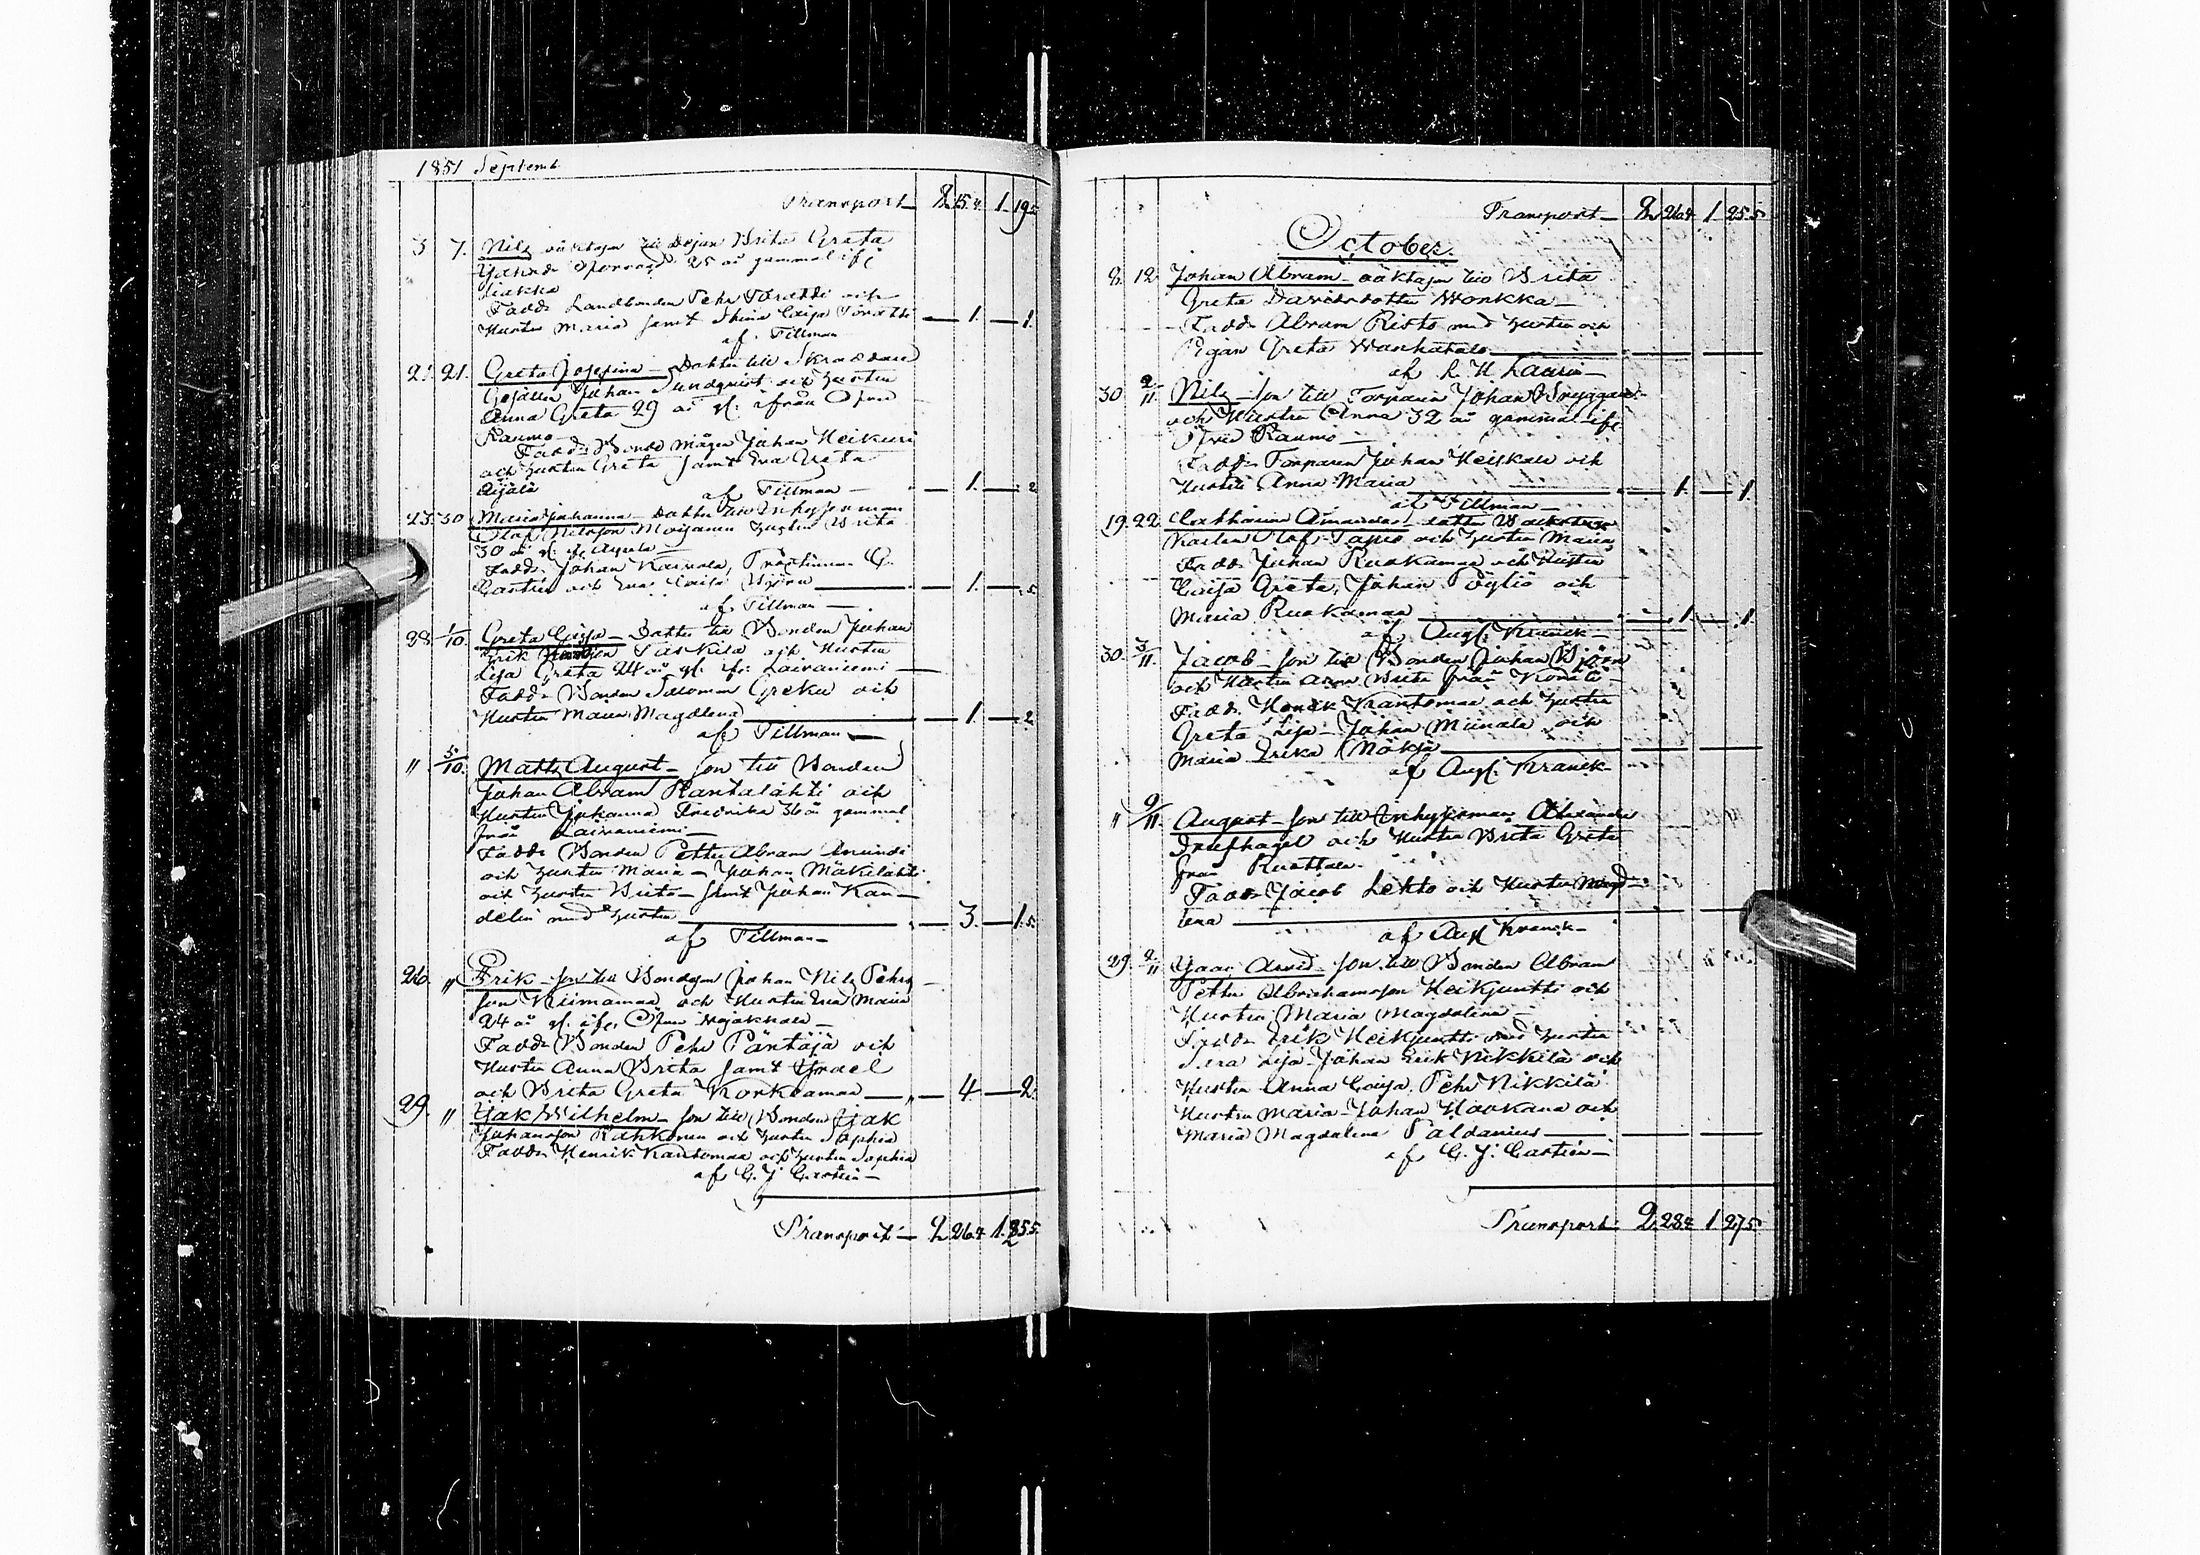 1851 Septemb
Transport 2 15.4. 1 19 5
3 7. Nils oäktason till Pigan Brita Greta
25 år gammal ifr
Liakka
Fadd. Landbonden Pehr och
Hustru Maria samt Caisa 1. 1.
af Tillman
21. 21. Greta Josefina Dotter till Skräddare
Gesällen Johan Sundqvist och Hustru
Anna Greta 29 år gl: ifrån Öfver
Raumo
Fadd. Bonde Mågen Johan Heikuri
och Hustru Greta samt Eva Greta
Äijälä 1. 2
af Tillman
23. 30 Maria Johanna Dotter till Inhysesman
Olof Nilsson Moijanen Hustru Brita
30 år gl. if.
Fadd. Johan Kainula, G.
Castrén och Eva Caisa Björn 1. 5.
af Tillman
28. 1/10. Greta Caisa Dotter till Bonden Johan
Erik och Hustru
Lisa Greta 24 år gl. ifr. Laivaniemi
Fadd. Bonden Salomon Greku och
Hustru Maria Magdlena 1. 2
af Tillman
" 5/10. Matts August son till Bonden
Johan Abram Rantalahti och
Hustru Johanna Fredrika 36 år gammal
från Laivaniemi
Fadd. Bonden Petter Abram Anundi
och Hustru Maria Johan Mäkilahti
och Hustru Brita samt Johan Kan-
delin med Hustru 3. 1.5.
af Tillman
26. " Erik son till Bondesson Johan Nils Pehrs
son Niimamaa och Hustru Eva Maria
24 år gl. ifr. Öfver Wojakkala
Fadd. Bonden Pehr Päntäjä och
Hustru Anna Brita samt Israel
och Brita Greta Korkiamaa 4 2.
29. " Isak Wilhelm son till Bonden Isak
Johansson Rahkonen och Hustru Sophia
Fadd. Henrik Kantomaa och Hustru Sophia
af G. J. Castrén
Transport 2 26.4 1. 255.
Transport 2 26.4 1 25 5
October.
8. 12. Johan Abram oäktason till Brita
Greta Davidsdotter Wonkka
Fadd. Abram Risto med Hustru och
Pigan Greta Wanhatalo
af L. H. Laurin
30. 2/11. Nils son till Torparen Johan Bryggare
och Hustru Anna 32 år gammal ifr
Öfver Raumo
Fadd. Torparen Johan Heiskari och
Hustru Anna Maria 1. 1.
af Tillman
19. 22. Catharina Amanda dotter
Karlen Olof Tapio och Hustru Maria
Fadd. Johan Ruokamaa och Hustru
Caisa Greta, Johan Pöyliö och
Maria Ruokamaa 1 1
af Augt. Kranck
30. 3/11. Jacob son till Bonden Johan Björn
och Hustru Anna Brita från
Fadd. Henrik Kantomaa och Hustru
Greta Lisa Johan Miinala och
Maria Erika Mökjö
af Augt. Kranck
" 9/11 August son till Inhysesman Alexander
Drufhagel och Hustru Brita Greta
från Ruottala
Fadd. Jacob Lehto och Hustru Magd-
lena
af Augt Kranck
29. 2/11 Isaac Arvid son till Bonden Abram
Petter Abrahamsson Heikjuntti och
Hustru Maria Magdalena
Fadd. Erik Heikjuntti med Hustru
Lisa Johan Erik Nikkilä och
Hustru Anna Caisa. Pehr Nikkilä
Hustru Maria Johan Haakana och
Maria Magdalena Paldanius
af G. J. Castrén
Transport 2 28.4 1 275